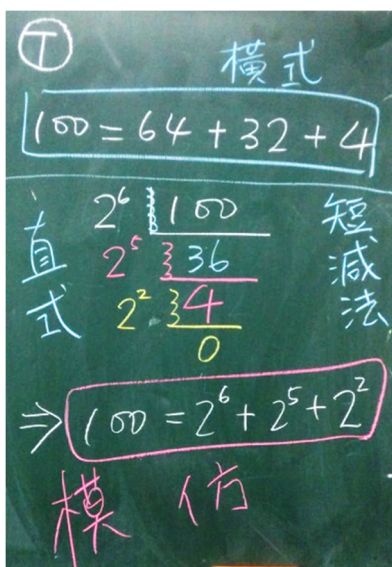 T
橫式
100 = 64 + 32 + 4
直式
短減法
2⁶ 100
2⁵ 36
2² 4
0
⇒ 100 = 2⁶ + 2⁵ + 2²
模仿